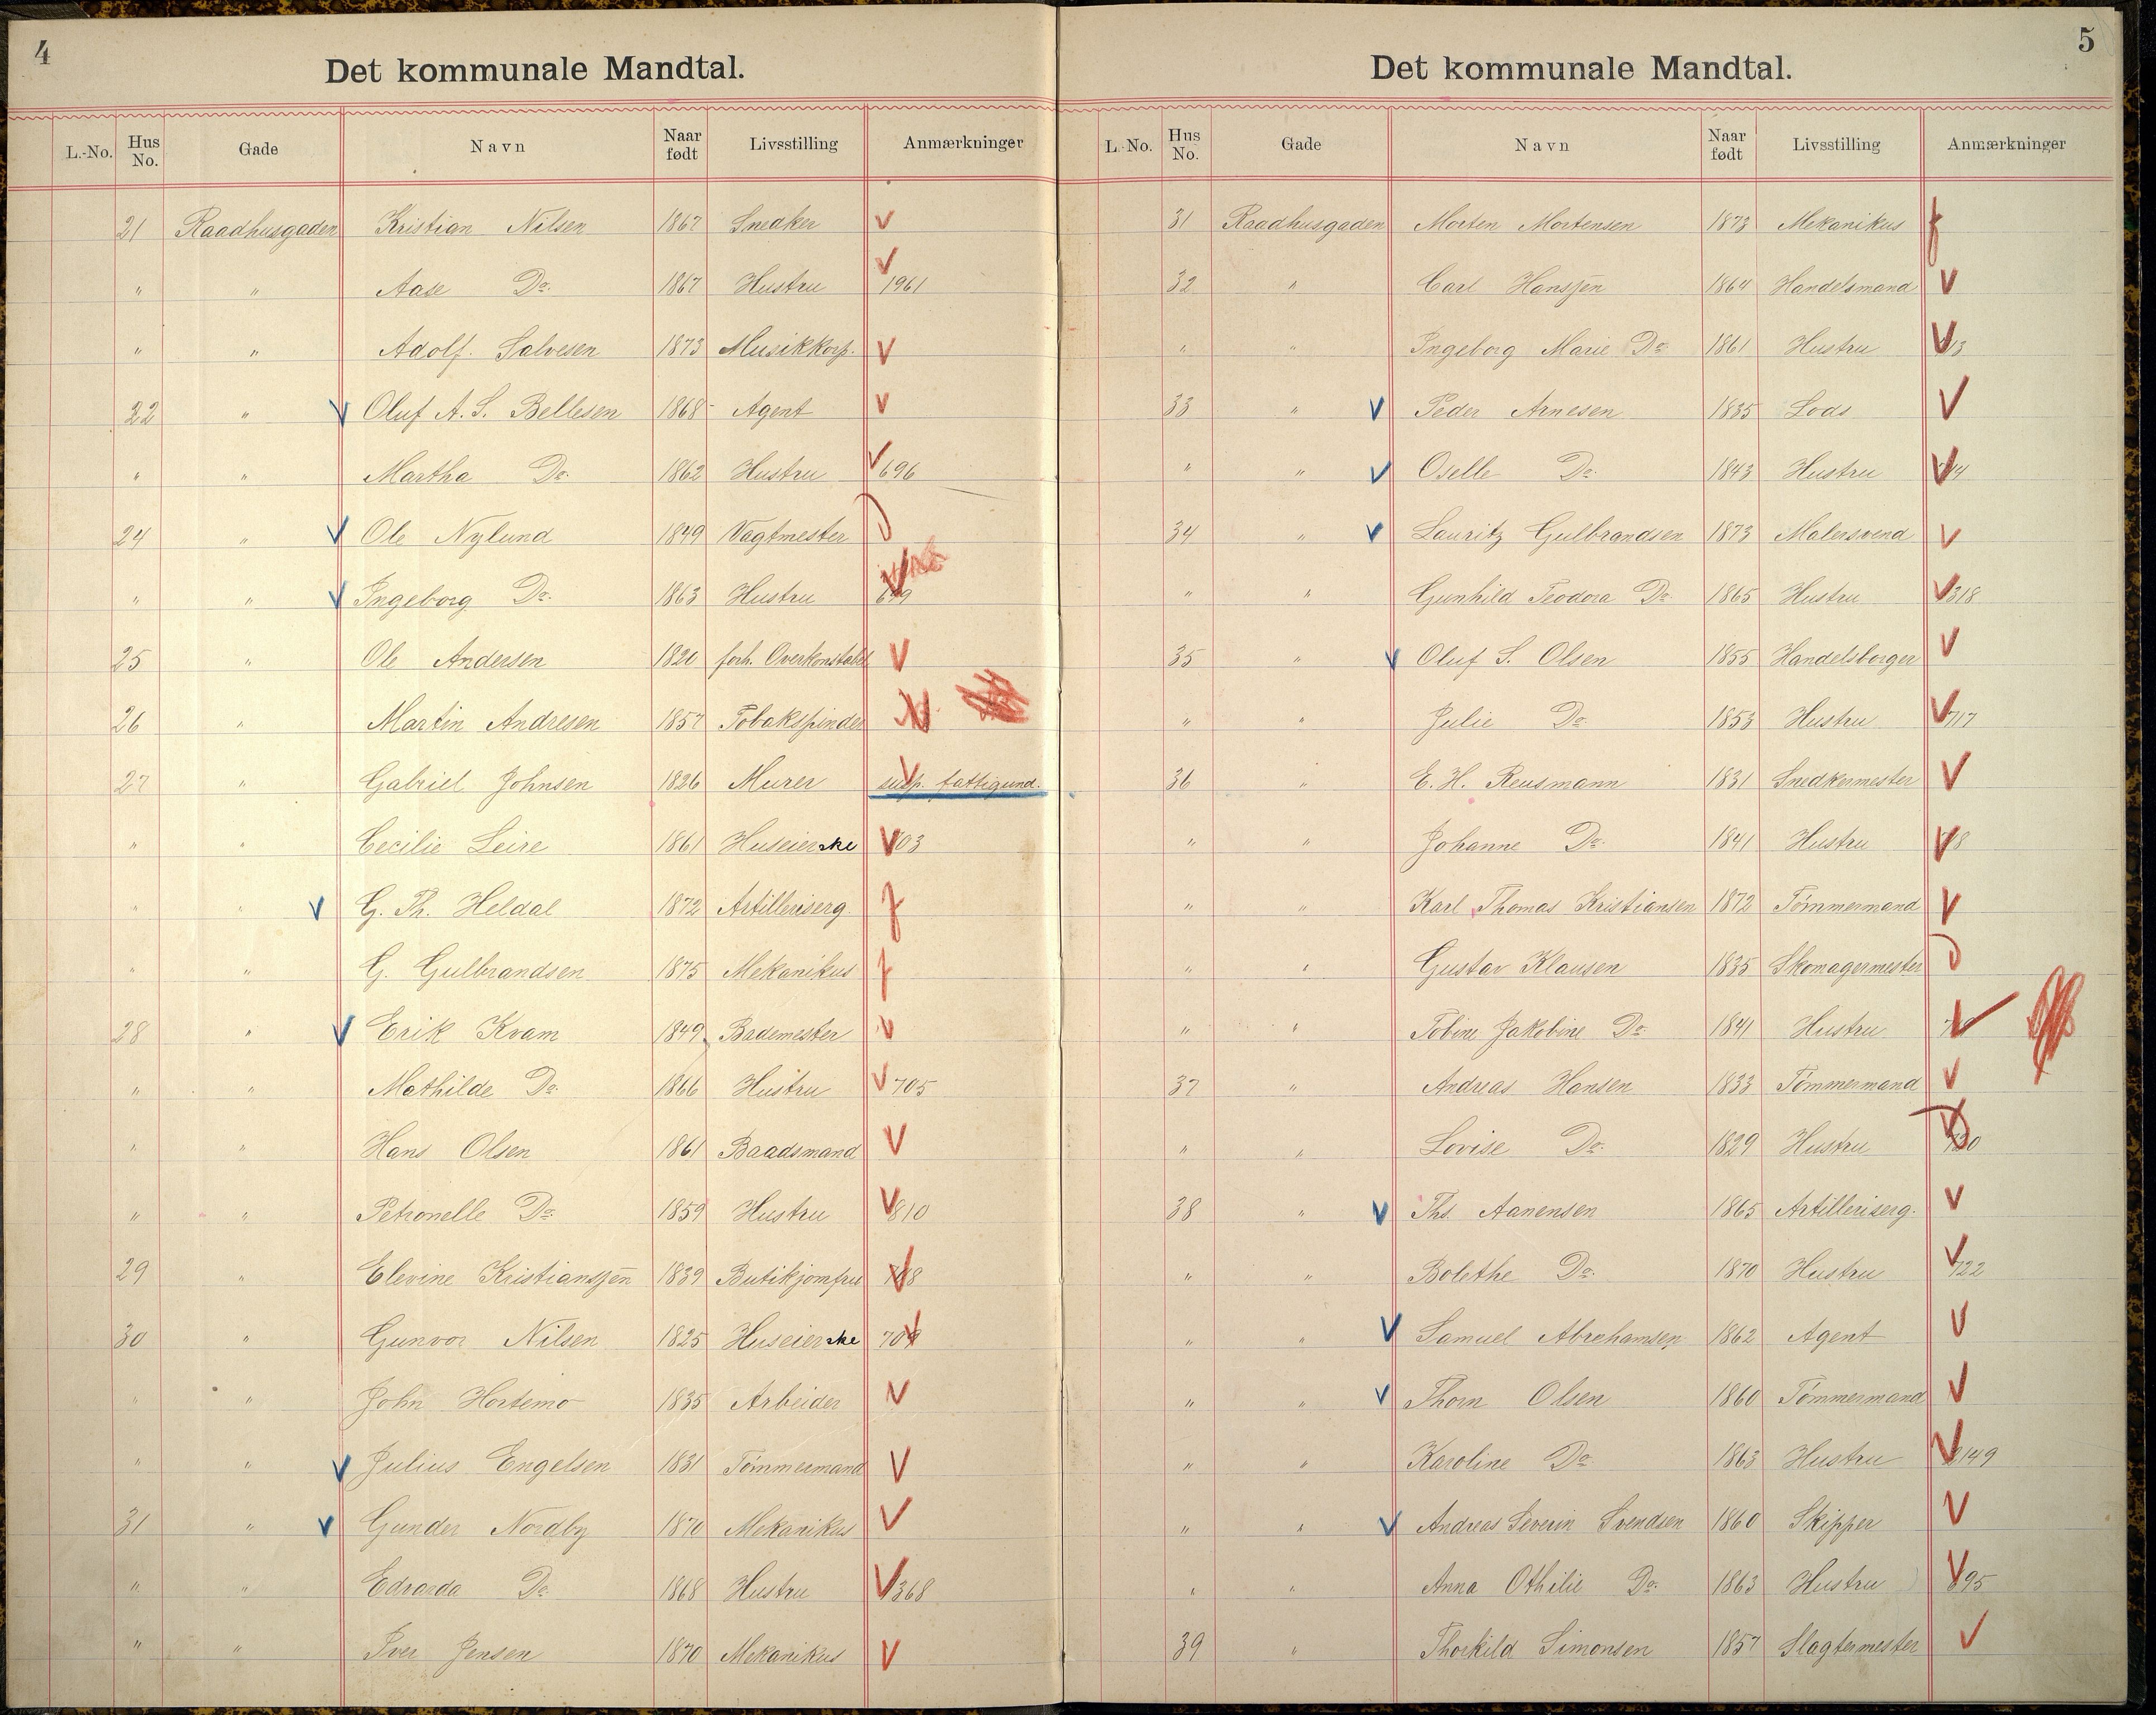 4
Det kommunale Mandtal.
L.-No. Hus No. Gade Navn Naar født Livsstilling Anmærkninger
21 Raadhusgaden Kristian Nilsen 1867 Snedker
" " Aase Do. 1867 Hustru 1961
" " Adolf Salvesen 1873 Musikkorp.
22 " Oluf A. S. Bellesen 1868 Agent
" " Martha Do. 1862 Hustru 696
24 " Ole Nylund 1849 Vagtmester
" " Ingeborg Do. 1863 Hustru
25 " Ole Andersen 1820 forh. Overkonstabel
26 " Martin Andresen 1857 Tobakspinder
27 " Gabriel Johnsen 1826 Murer susp. fattigund.
" " Cecilie Leire 1861 Huseierske 703
" " G. Th. Heldal 1872 Artilleriserg.
" " G. Gulbrandsen 1875 Mekanikus
28 " Erik Kvam 1849 Bademester
" " Mathilde Do. 1866 Hustru 705
" " Hans Olsen 1861 Baadsmand
" " Petronelle Do. 1859 Hustru 810
29 " Elevine Kristianssen 1839 Butikjomfru 708
30 " Gunvor Nilsen 1825 Huseierske 709
" " John Hortemo 1835 Arbeider
" " Julius Engelsen 1831 Tömmermand
31 " Gunder Nordby 1870 Mekanikus
" " Edvarda Do. 1868 Hustru 368
" " Iver Jensen 1870 Mekanikus
5
Det kommunale Mandtal.
L.-No. Hus No. Gade Navn Naar født Livsstilling Anmærkninger
31 Raadhusgaden Morten Mortensen 1873 Mekanikus
32 " Carl Hanssen 1864 Handelsmand
" " Ingeborg Marie Do. 1861 Hustru
33 " Peder Arnesen 1835 Lods
" " Oselle Do. 1843 Hustru
34 " Lauritz Gulbrandsen 1873 Malersvend
" " Gunhild Teodora Do. 1865 Hustru 318
35 " Oluf S. Olsen 1855 Handelsborger
" " Julie Do. 1853 Hustru 717
36 " E. H. Reusmann 1831 Snedkermester
" " Johanne Do. 1841 Hustru
" " Karl Thomas Kristiansen 1872 Tömmermand
" " Gustav Klausen 1835 Skomagermester
" " Tobine Jakobine Do. 1841 Hustru
37 " Andreas Hansen 1833 Tömmermand
" " Lovise Do. 1829 Hustru
38 " Ths. Aanensen 1865 Artilleriserg.
" " Bolethe Do. 1870 Hustru 722
" " Samuel Abrahamsen 1862 Agent
" " Thorn Olsen 1860 Tömmermand
" " Karoline Do. 1863 Hustru
" " Andreas Severin Svendsen 1860 Skipper
" " Anna Othilie Do. 1863 Hustru
39 " Thorkild Simonsen 1857 Slagtermester